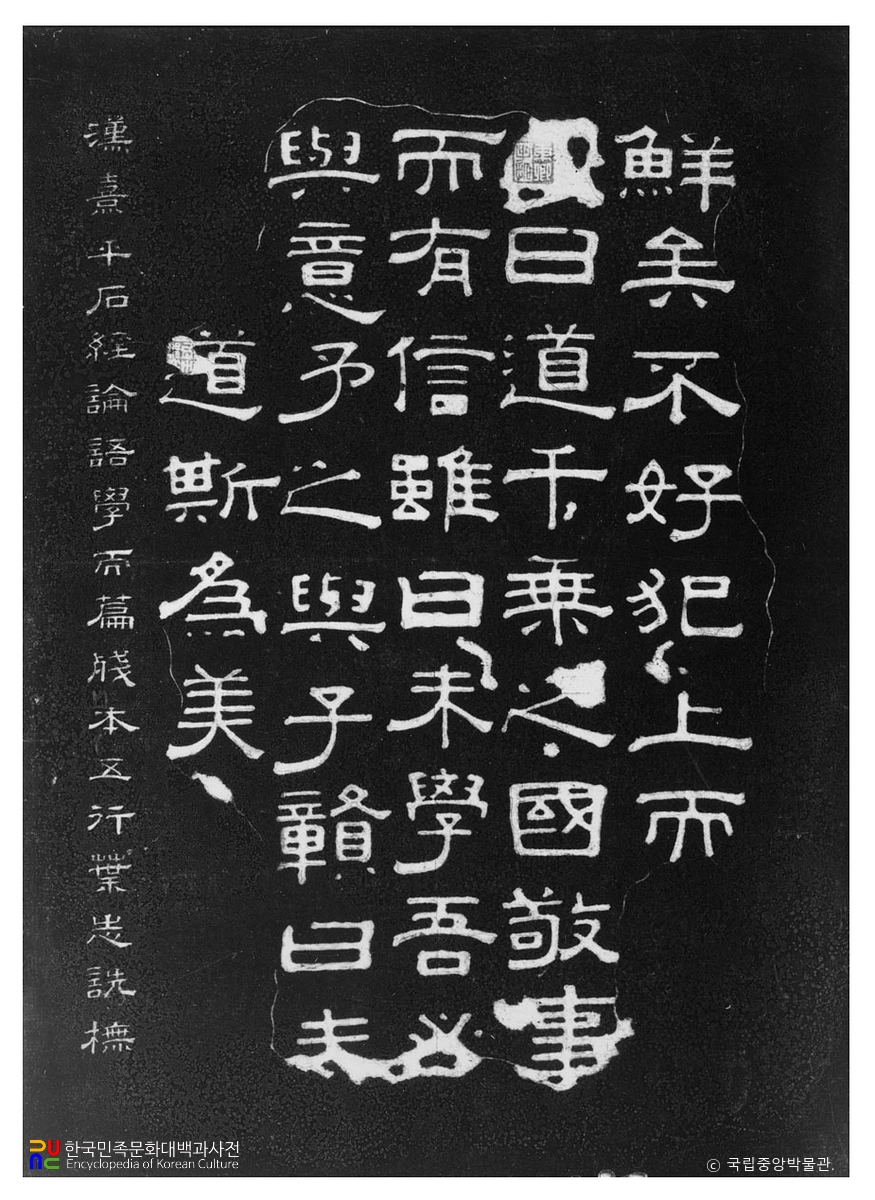 鮮矣不好犯上而
曰道千乗之國敬事
而有信雖曰未學吾必
與意予之與子贛曰夫
道斯為美
漢熹平石經論語學而篇殘本五行葉志詵橅
한국민족문화대백과사전
Encyclopedia of Korean Culture
© 국립중앙박물관.